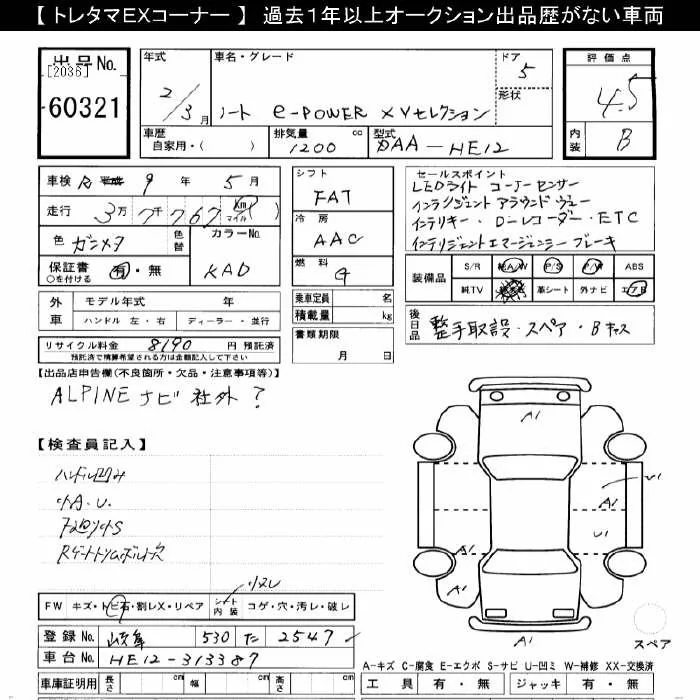 【 トレタマEXコーナー 】 過去1年以上オークション出品歴がない車両
出品No.
[2036]
60321
年式
2/3月
車名・グレード
ノート e-POWER XVセレクション
ドア
5
形状
評価点
4.5
内装
B
車歴
自家用・( )
排気量 cc
1200
型式
DAA-HE12
車検 R 平成 9年 5月
走行 3万7千767 km マイル
色 ガンメタ
色替
カラーNo.
KAD
保証書 有・無
○を付ける
シフト
FAT
冷房
AAC
燃料
セールスポイント
LEDライト コーナーセンサー
インテリジェント アラウンドヴュー
インテリキー・Dレコーダー・ETC
インテリジェントエマージェンシーブレーキ
装備品
S/R 純A/W P/S P/W ABS
純TV 革シート 外ナビ エアB
外車
モデル年式 年
ハンドル 左・右 ディーラー・並行
乗車定員 名
積載量 kg
後日品
整手取設・スペア・Bキャス
リサイクル料金 8190 円 預託済
預託済で精算希望される方は金額記入して下さい
書類期限
月 日
【出品店申告欄(不良箇所・欠品・注意事項等)】
ALPINE ナビ 社外?
【検査員記入】
ハンドル凹み
小A.U.
下廻り小S
A1
A1
U1
A1
A1
A1
スペア
FW キズ・トビ石・割レX・リペア シート内装 コゲ・穴・汚レ・破レ
登録No. 岐阜 530 た 2547
車台No. HE12-313387
車庫証明用 長さ cm 幅 cm 高さ cm
A-キズ C-腐食 E-エクボ S-サビ U-凹ミ W-補修 XX-交換済
工具 有・無 ジャッキ 有・無